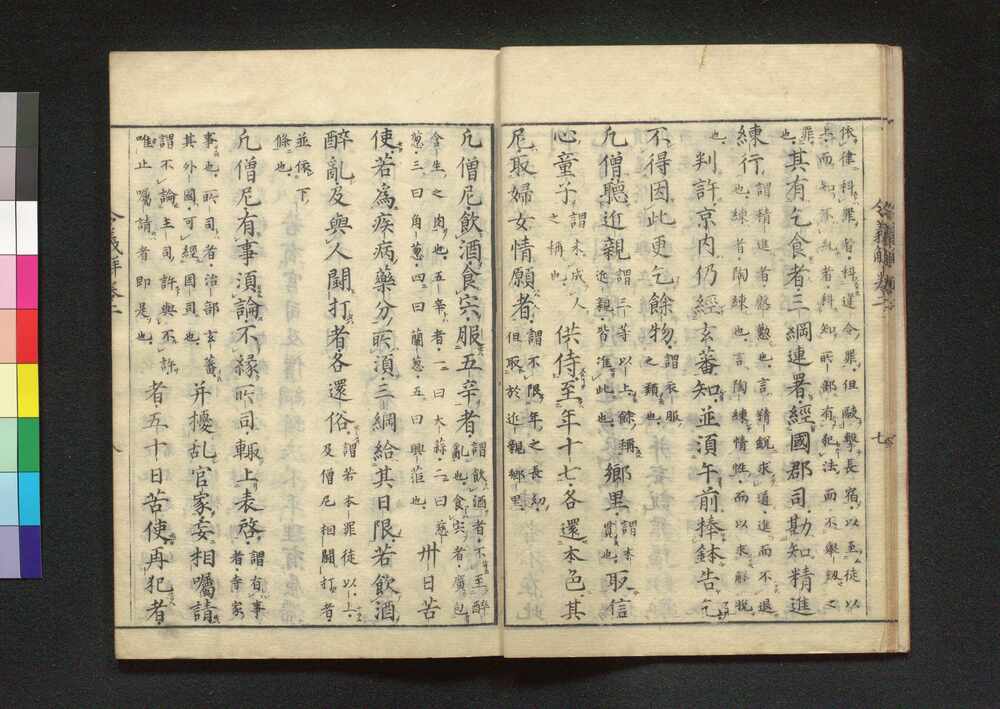 依律科罪者科違令罪但毆擊長宿以至徒以
上而知不糺者科知所部有犯法而不舉劾之
罪也
其有乞食者三綱連署經國郡司勘知精進
練行謂精進者慇懃也言精銳求道進而不退也練者陶練也言陶練情性而以求解脫
也判許京內仍經玄蕃知並須午前捧鉢告乞
不得因此更乞餘物謂衣服之類也
凡僧聽近親謂三等以上餘稱近親皆准此也鄉里謂本貫也取信
心童子謂未成人之稱也供侍至年十七各還本色其
尼取婦女情願者謂不限年之長幼但取於近親鄉里
令義解卷二
七
凡僧尼飲酒食宍服五辛者謂飲酒者不至醉亂也食宍者廣
含生之肉也五辛者一曰大蒜二曰慈葱三曰角葱四曰蘭葱五曰興蕖也卅日苦
使若為疾病藥分所須三綱給其日限若飲酒
醉亂及與人鬪打者各還俗謂若本罪徒以上及僧尼相鬪打者
並依下條也
凡僧尼有事須論不緣所司輙上表啓謂有事者寺家
事也所司者治部玄蕃其外國可經國司也并擾乱官家妄相囑請
謂不論主司許與不許唯止囑請者即是也者五十日苦使再犯者
令義解卷二
八